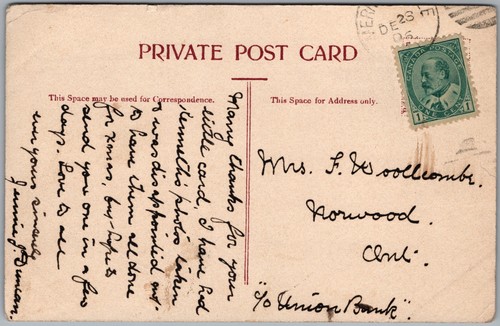 DE 23
PRIVATE POST CARD
CANADA POSTAGE
1 ONE CENT 1
This Space may be used for Correspondence.
This Space for Address only.
Many thanks for your
little card I have had
Kenneth's photos taken
& was disappointed not
to have them all done
for Xmas, but hope to
send you one in a few
days. Love to all
ever yours sincerely
Jennie J. Duncan.
Mrs. F. Woollcombe.
Norwood
Ont.
"c/o Union Bank".